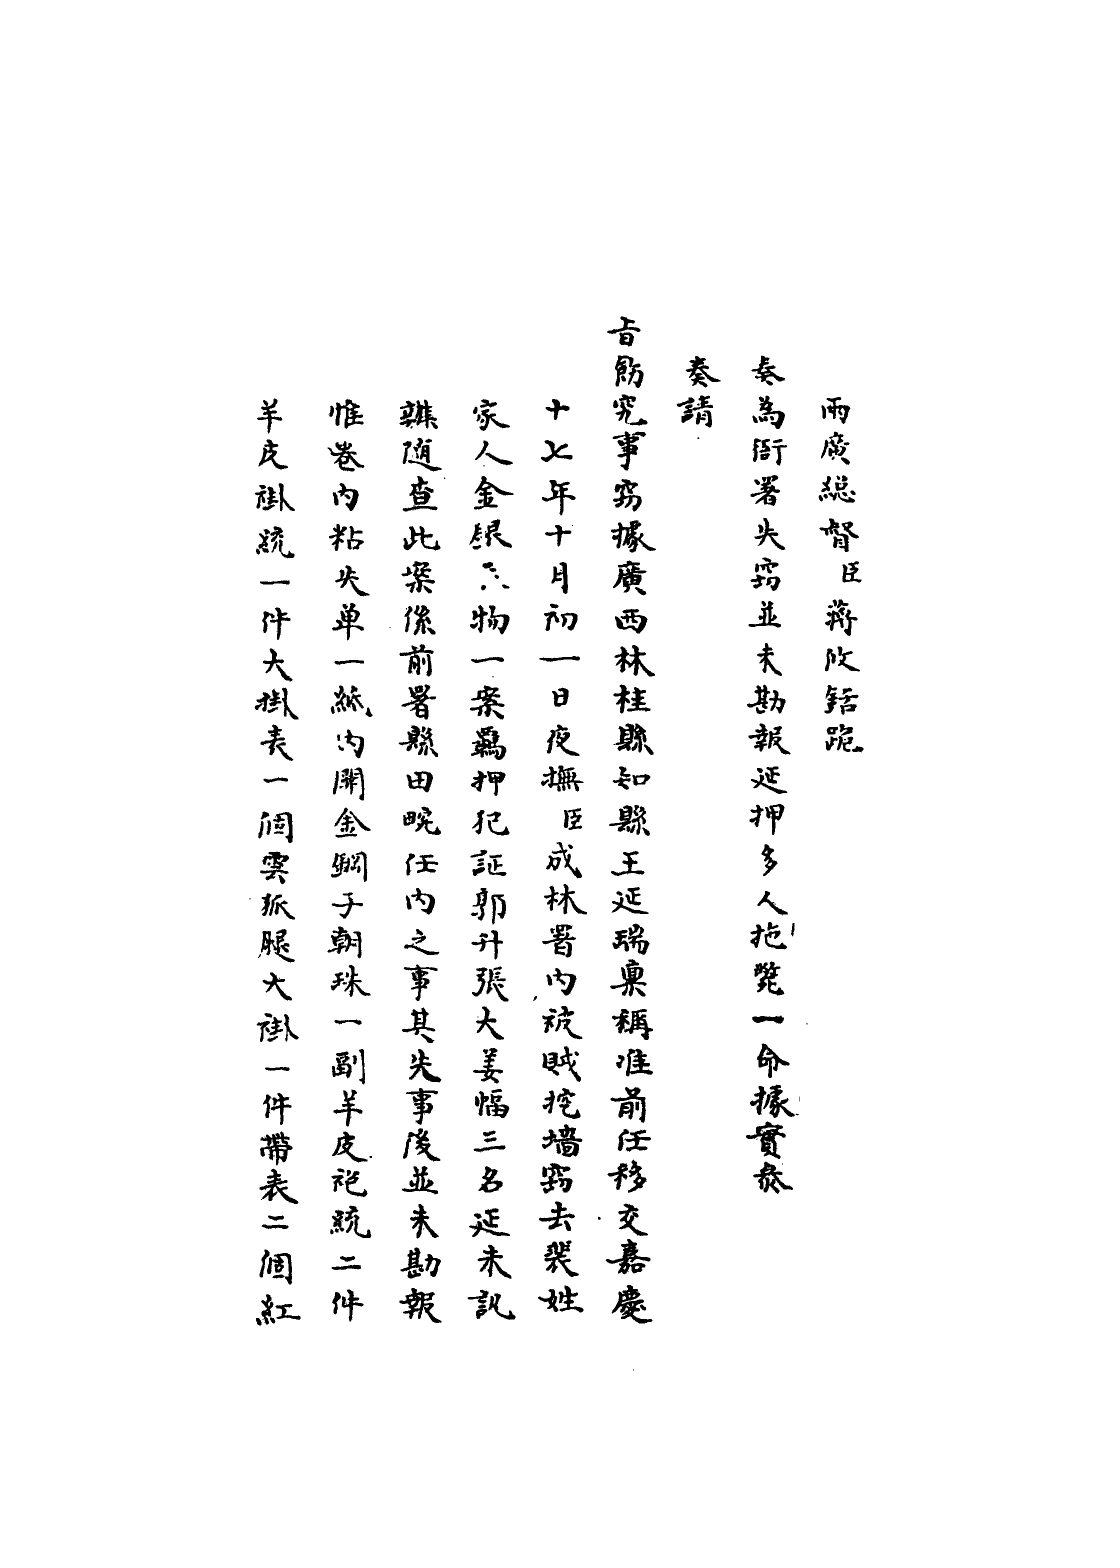 兩廣總督臣蔣攸銛跪
奏為衙署失竊並未勘報延押多人拖斃一命據實叅
奏請
旨飭究事竊據廣西林桂縣知縣王延瑞稟稱准前任移交嘉慶
十七年十月初一日夜撫臣成林署內被賊挖墻竊去裴姓
家人金銀物一案羈押犯証郭升張大姜幅三名延未訊
辦隨查此案係前署縣田畹任內之事其失事後並未勘報
惟卷內粘失单一紙內開金鐲子朝珠一副羊皮袍統二件
羊皮褂統一件大掛表一個雲狐腿大褂一件帶表二個紅